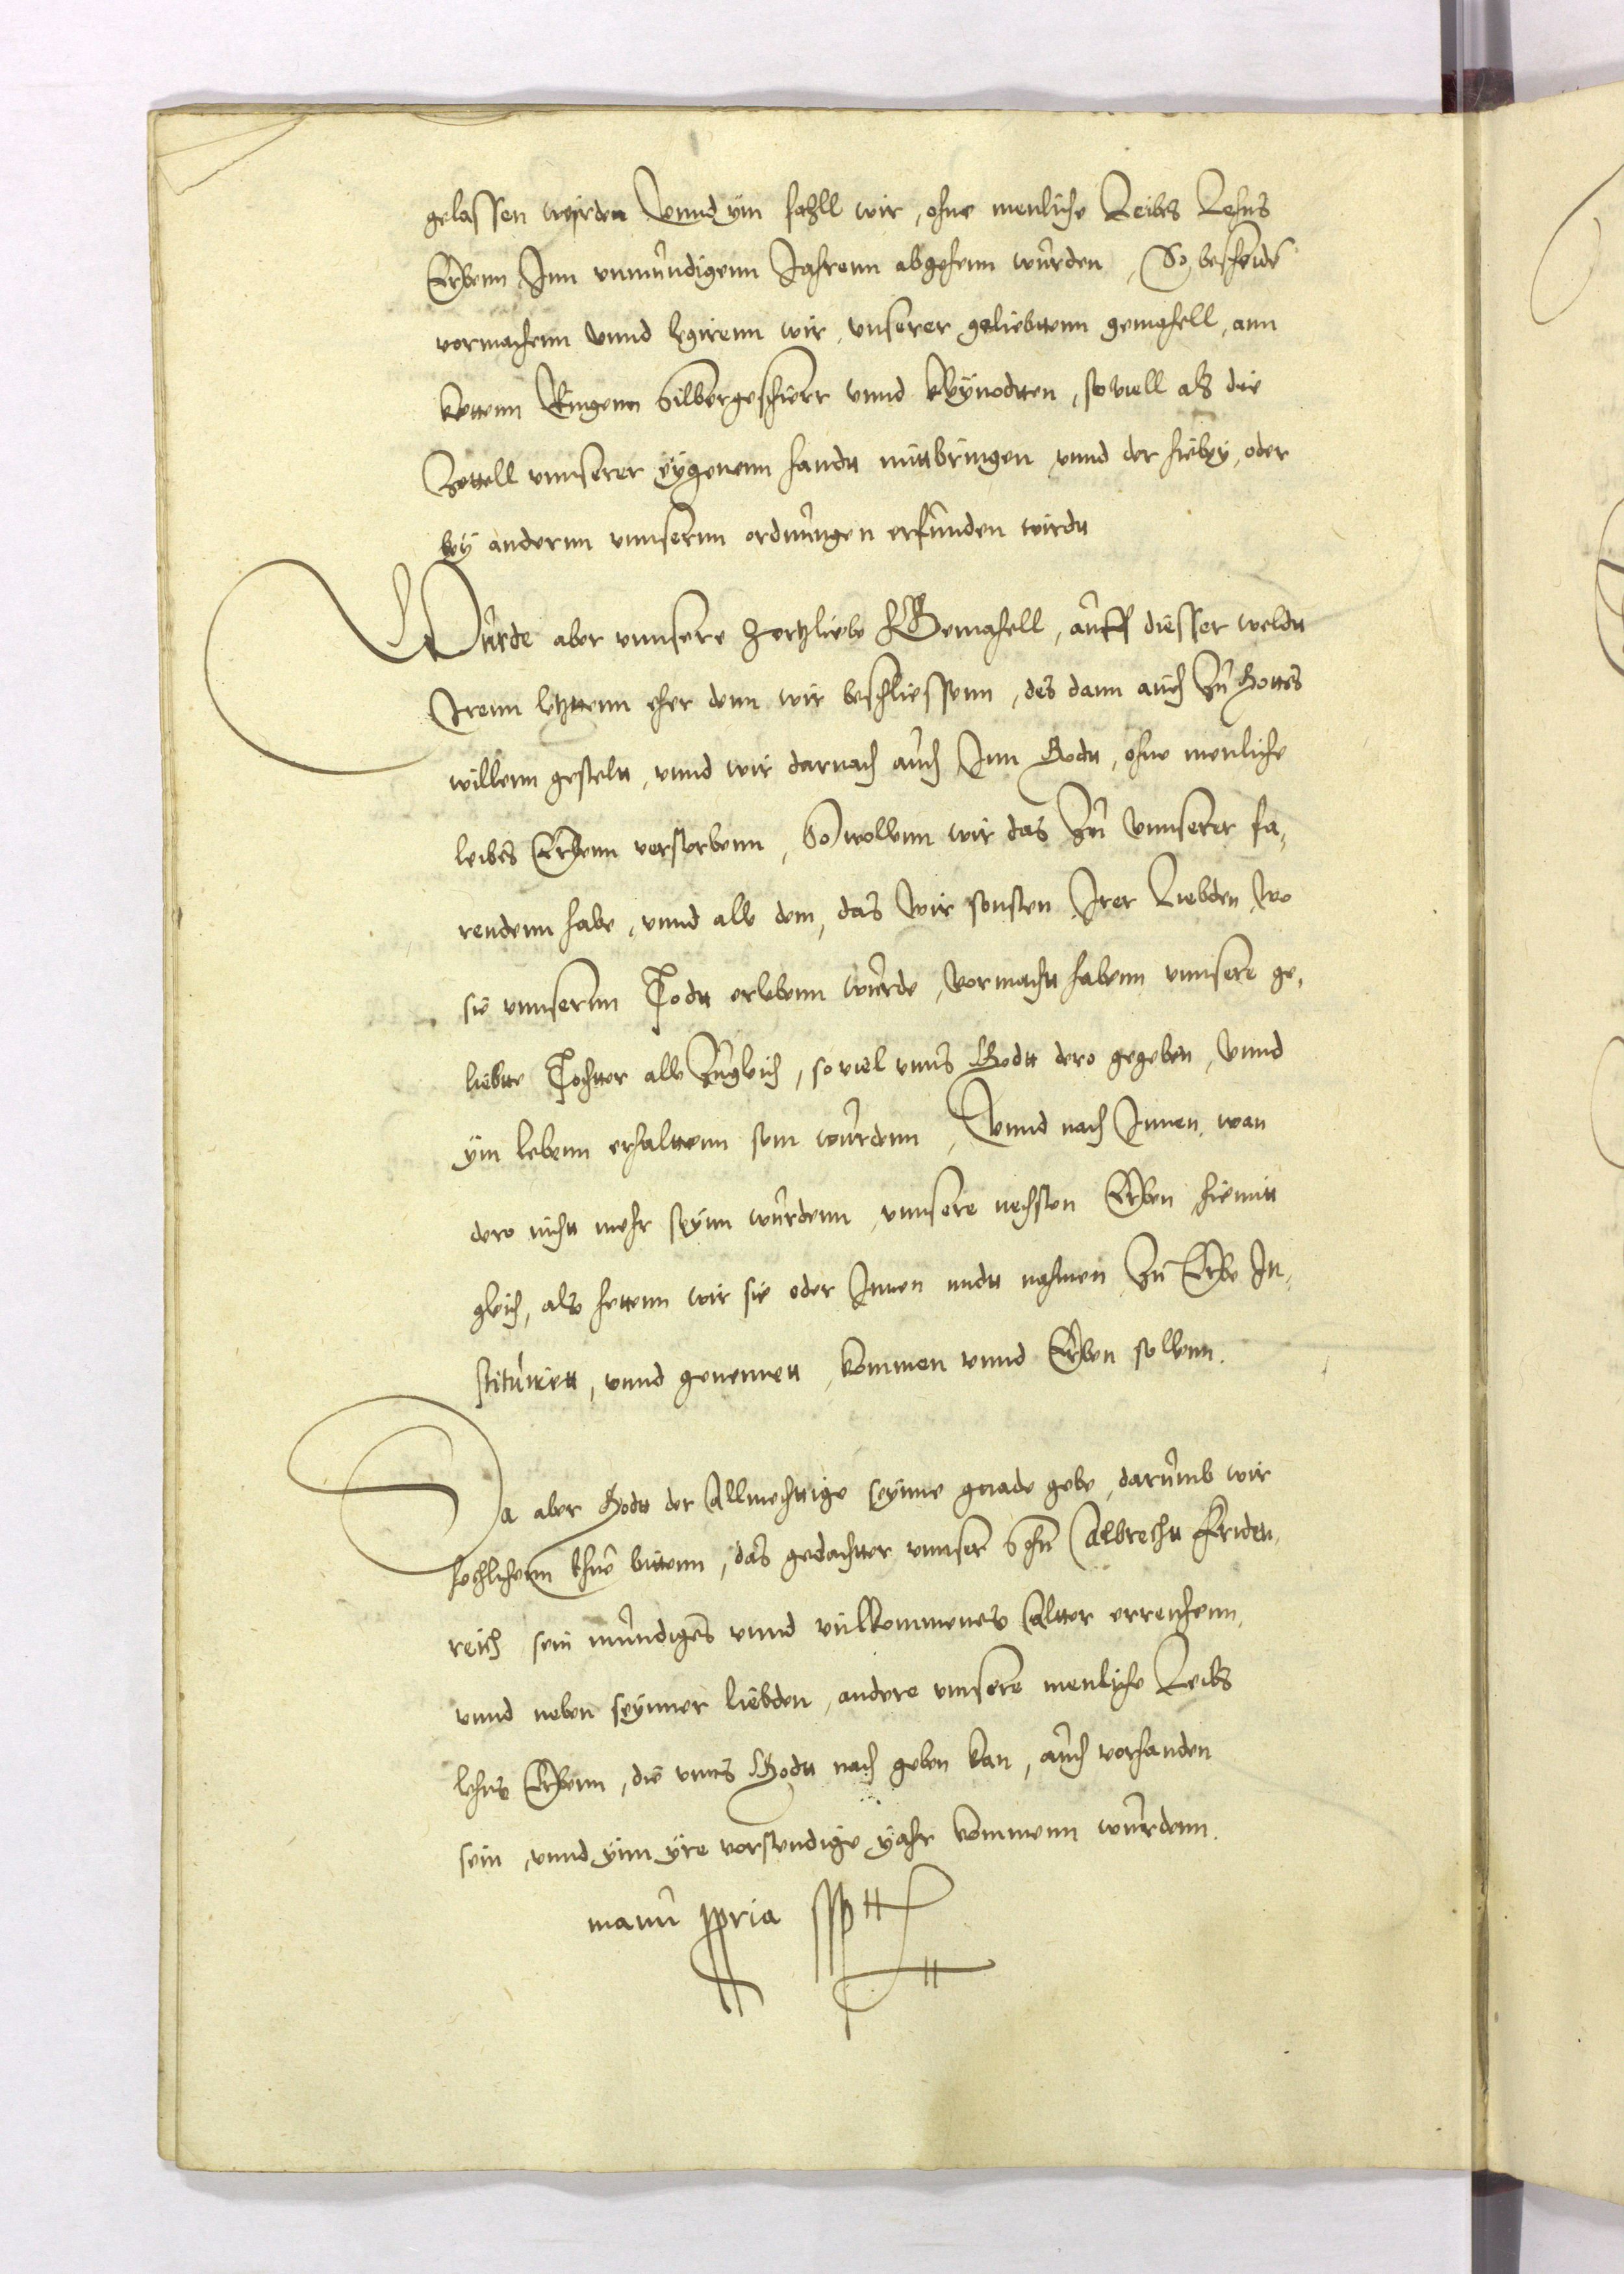 gelassen wirden Vnnd ym fahll wir, ohne menliche Leibes Lehns
Erbenn Inn vnmundigenn Jahrenn abgehenn wurden, So bescheide
vormachenn Vnnd legirenn wir, vnserer geliebttenn gemahell, ann
kettenn Ringenn Silbergeschierr vnnd kleynodtten, so viell als die
Zettell vnnserer eygenenn handtt mittbringen vnnd der hiebey, oder
bey anderenn vnnserenn ordnungen erfunden wirdtt
Wurde aber vnnsere hertzliebe Gemahell, auff diesser weldtt
Irenn letzttenn eher denn wir beschliessenn, des dann auch Zu Gottes
willenn gesteltt, vnnd wir darnach auch Inn Godtt, ohne menliche
leibes Erbenn versterbenn, So wollenn wir das Zu Vnnserer fa,
rendenn habe, vnnd alle dem, das wir sonsten Irer Liebden, wo
sie vnnserenn Todtt erlebenn wurde, Vormachtt habenn vnnsere ge,
liebtte Tochtter alle Zugleich, so viel vnns Godtt dero gegeben, Vnnd
ym lebenn erhalttenn sein wurdenn, Vnnd nach Innen, wan
dero nicht mehr seynn wurdenn, vnnsere nechsten Erben hiemitt
gleich, als hettenn wir sie oder Innen mitt nahmen Zu Erbe In,
stituirett, vnnd genennett, kommen vnnd Erben sollenn.
Da aber Godtt der Allmechttige seynne gnade gebe, darumb wir
hochlichenn bittenn, das gedachtter vnnser Sohn Albrechtt Fridtt,
reich sein mundiges vnnd vulkommenes Altter erreichenn,
vnnd neben seynner liebden, andere vnsere menliche Leibs
lehns Erbenn, die vnns Godtt nach geben kan, auch vorhanden
sein, vnnd ynn yre vorstendige yahr kommenn wurdenn.
manu ppria sspt